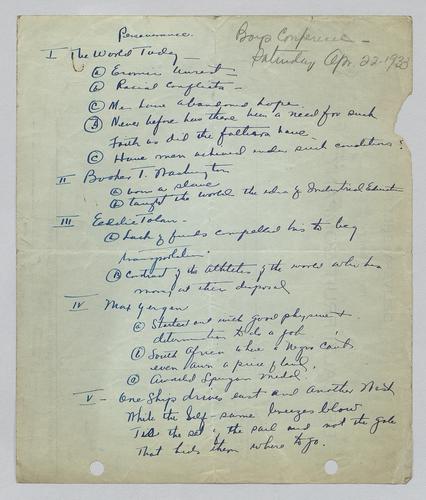 Perseverance.
Boys Conference -
Saturday Apr. 22-1933
I The World Today -
(a) Economic Unrest -
(b) Racial Conflicts -
(c) Men have abandoned hope.
(d) Never before has there been a need for such
Faith as did the fathers have -
(c) Have men achieved under such conditions?
II Booker T. Washington
(a) was a slave
(b) taught the world the idea of Industrial Education
III Eddie Tolan -
(a) Lack of funds compelled him to beg
transportation.
(b) Contrast of the athletes of the world who has
money at their disposal
IV Max Yergan
(a) Started out with good physique &
determination to do a job
(b) South Africa where a Negro can't
even own a piece of land.
(c) Awarded Spingarn Medal.
V - One Ship drives east and Another West
While the Self-same breezes blow
Tis the set of the sail and not the gale
That bids them where to go.